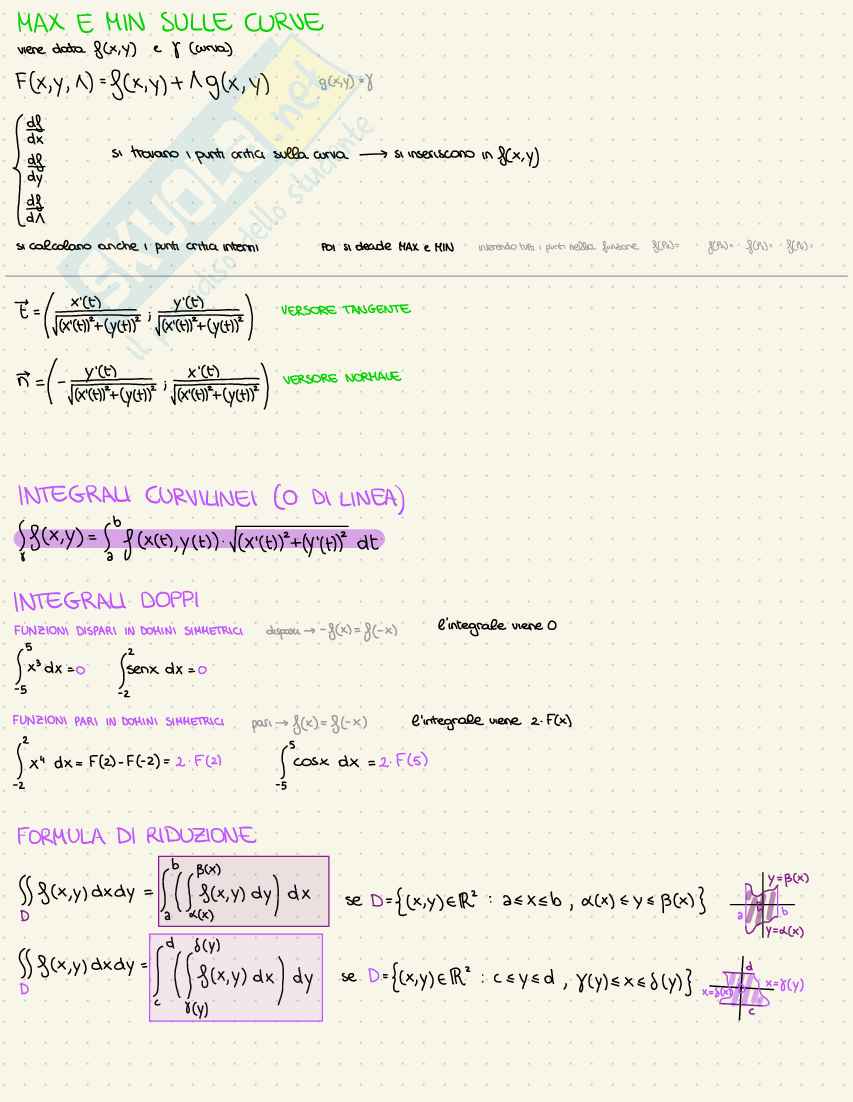 MAX E MIN SULLE CURVE
viene data f(x,y) e γ (curva)
F(x,y,Λ) = f(x,y) + Λ g(x,y) g(x,y) = γ
{ df/dx
df/dy
df/dΛ
si trovano i punti critici sulla curva → si inseriscono in f(x,y)
si calcolano anche i punti critici interni poi si decide MAX e MIN inserendo tutti i punti nella funzione f(P₁)= f(P₂)= f(P₃)=
SKUOLA.net
il paradiso dello studente
t⃗ = ( x'(t) / √((x'(t))²+(y(t))²) ; y'(t) / √((x'(t))²+(y(t))²) ) VERSORE TANGENTE
n⃗ = ( - y'(t) / √((x'(t))²+(y(t))²) ; x'(t) / √((x'(t))²+(y(t))²) ) VERSORE NORMALE
INTEGRALI CURVILINEI (O DI LINEA)
∫γ f(x,y) = ∫ₐᵇ f(x(t),y(t)) · √((x'(t))²+(y'(t))²) dt
INTEGRALI DOPPI
FUNZIONI DISPARI IN DOMINI SIMMETRICI dispari → -f(x) = f(-x) l'integrale viene 0
∫₋₅⁵ x³ dx = 0 ∫₋₂² senx dx = 0
FUNZIONI PARI IN DOMINI SIMMETRICI pari → f(x) = f(-x) l'integrale viene 2·F(x)
∫₋₂² x⁴ dx = F(2) - F(-2) = 2·F(2) ∫₋₅⁵ cosx dx = 2·F(5)
FORMULA DI RIDUZIONE
∬_D f(x,y) dxdy = ∫ₐᵇ ( ∫_{α(x)}^{β(x)} f(x,y) dy ) dx se D = {(x,y)∈ℝ² : a≤x≤b , α(x)≤y≤β(x)}
y=β(x)
a b
y=α(x)
∬_D f(x,y) dxdy = ∫_c^d ( ∫_{γ(y)}^{δ(y)} f(x,y) dx ) dy se D = {(x,y)∈ℝ² : c≤y≤d , γ(y)≤x≤δ(y)}
d
x=δ(x) x=γ(y)
c